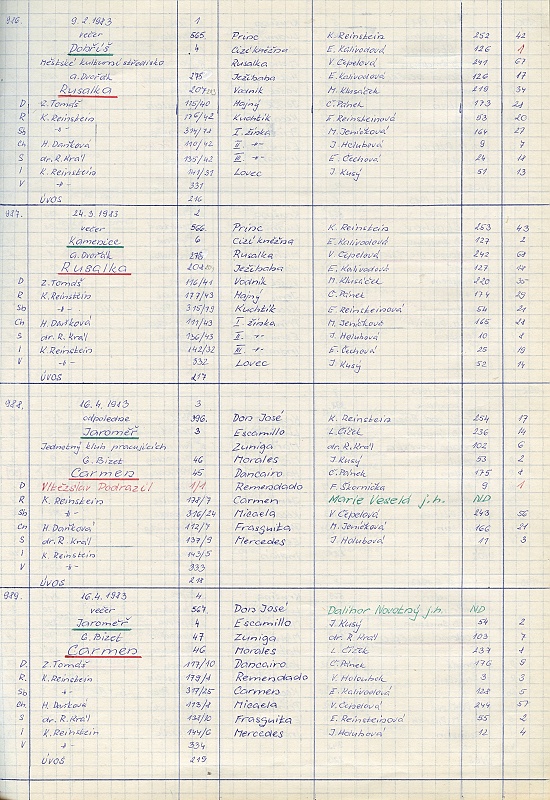 986. 9.2.1983 1
večer 565 Princ K. Reinstein 252 42
Dobříš 4 Cizí kněžna E. Kalivodová 126 1
Městské kulturní středisko Rusalka V. Čepelová 241 67
A. Dvořák 275 Ježibaba E. Kalivodová 126 17
Rusalka Vodník M. Klusáček 219 34
D Z. Tomáš 115/40 Hajný Č. Pánek 173 21
R K. Reinstein 176/42 Kuchtík E. Reinsteinová 53 20
Sb -"- 314/78 I. žínka M. Jeníčková 164 27
Ch H. Daňková 110/42 II. -"- J. Holubová 9 7
S dr. R. Král 135/42 III. -"- E. Čechová 24 18
I K. Reinstein 141/31 Lovec J. Kusý 51 13
V -"- 331
ÚVOS 216
987. 24.3.1983 2
večer 566. Princ K. Reinstein 253 43
Kamenice 6 Cizí kněžna E. Kalivodová 127 2
A. Dvořák 276 Rusalka V. Čepelová 242 68
Rusalka Ježibaba E. Kalivodová 127 18
D Z. Tomáš 116/41 Vodník M. Klusáček 220 35
R K. Reinstein 177/43 Hajný Č. Pánek 174 29
Sb -"- 315/79 Kuchtík E. Reinsteinová 54 21
Ch H. Daňková 111/43 I. žínka M. Jeníčková 165 28
S dr. R. Král 136/43 II. -"- J. Holubová 10 8
I K. Reinstein 142/32 III. -"- E. Čechová 25 19
V -"- 332 Lovec J. Kusý 52 14
ÚVOS 217
988. 16.4.1983 3
odpoledne 396. Don José K. Reinstein 254 17
Jaroměř 3 Escamillo L. Čížek 236 14
Jednotný klub pracujících Zuniga dr. R. Král 102 6
G. Bizet 46 Morales J. Kusý 53 2
Carmen 45 Dancairo Č. Pánek 175 8
D Vítězslav Podrazil 1/1 Remendado F. Škornička 9 1
R K. Reinstein 178/7 Carmen Marie Veselá j.h. ND
Sb -"- 316/24 Micaela V. Čepelová 243 56
Ch H. Daňková 112/7 Frasquita M. Jeníčková 166 21
S dr. R. Král 137/9 Mercedes J. Holubová 11 3
I K. Reinstein 143/5
V -"- 333
ÚVOS 218
989. 16.4.1983 4
večer 567. Don José Dalibor Novotný j.h. ND
Jaroměř 4 Escamillo J. Kusý 54 2
G. Bizet 47 Zuniga dr. R. Král 103 7
Carmen 46 Morales L. Čížek 237 1
D. Z. Tomáš 117/10 Dancairo Č. Pánek 176 9
R. K. Reinstein 179/8 Remendado V. Holoubek 3 3
Sb -"- 317/25 Carmen E. Kalivodová 128 5
Ch. H. Daňková 113/8 Micaela V. Čepelová 244 57
S dr. R. Král 138/10 Frasquita E. Reinsteinová 55 2
I K. Reinstein 144/6 Mercedes J. Holubová 12 4
V -"- 334
ÚVOS 219